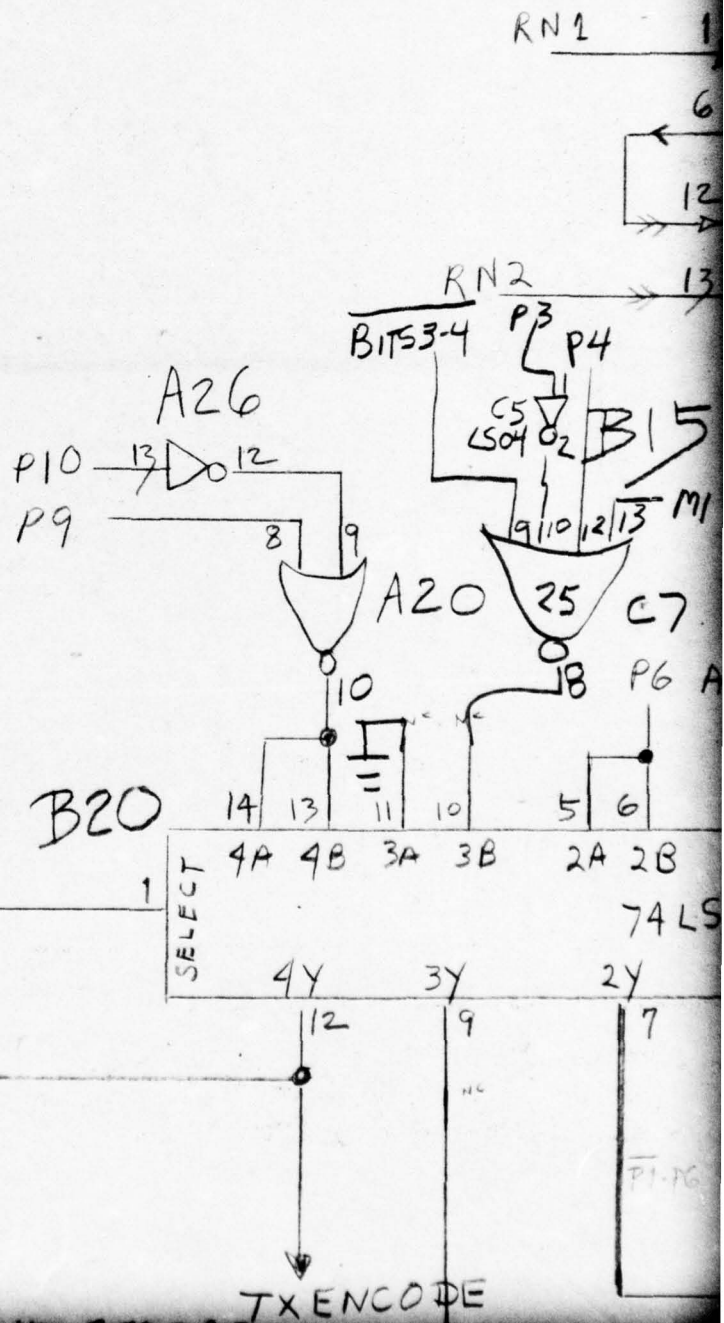 RN1 1
6
12
RN2 13
BITS3-4 P3 P4
A26 C5 B15
LS04 2
P10 13 12
P9 8 9 9 10 12 13 M1
A20 25 C7
10 8 P6 A
NC NC
B20 14 13 11 10 5 6
4A 4B 3A 3B 2A 2B
1 SELECT 74LS
4Y 3Y 2Y
12 9 7
NC
P1-P6
TXENCODE